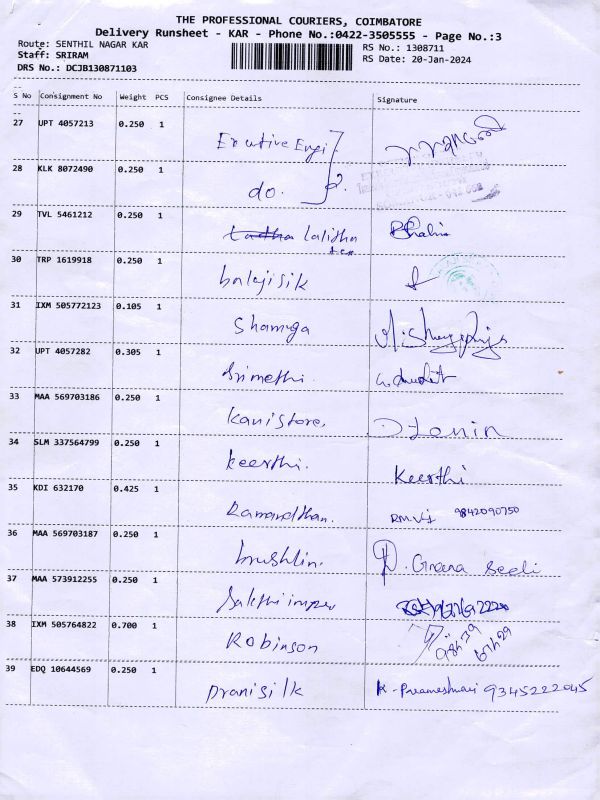 THE PROFESSIONAL COURIERS, COIMBATORE
Delivery Runsheet - KAR - Phone No.:0422-3505555 - Page No.:3
Route: SENTHIL NAGAR KAR RS No.: 1308711
Staff: SRIRAM RS Date: 20-Jan-2024
DRS No.: DCJB130871103
S No Consignment No Weight PCS Consignee Details Signature
27 UPT 4057213 0.250 1 Exutive Engi
28 KLK 8072490 0.250 1 do.
29 TVL 5461212 0.250 1 Lalitha
30 TRP 1619918 0.250 1 balajisik
31 IXM 505772123 0.105 1 Shamuga
32 UPT 4057282 0.305 1 Srimethi.
33 MAA 569703186 0.250 1 Kanistore,
34 SLM 337564799 0.250 1 keerthi. Keerthi
35 KDI 632170 0.425 1 Ramanathan. 9842090750
36 MAA 569703187 0.250 1 brushlin. Gnana
37 MAA 573912255 0.250 1 Sakthi
38 IXM 505764822 0.700 1 Robinson
39 EDQ 10644569 0.250 1 Pranisilk K. 9345222045